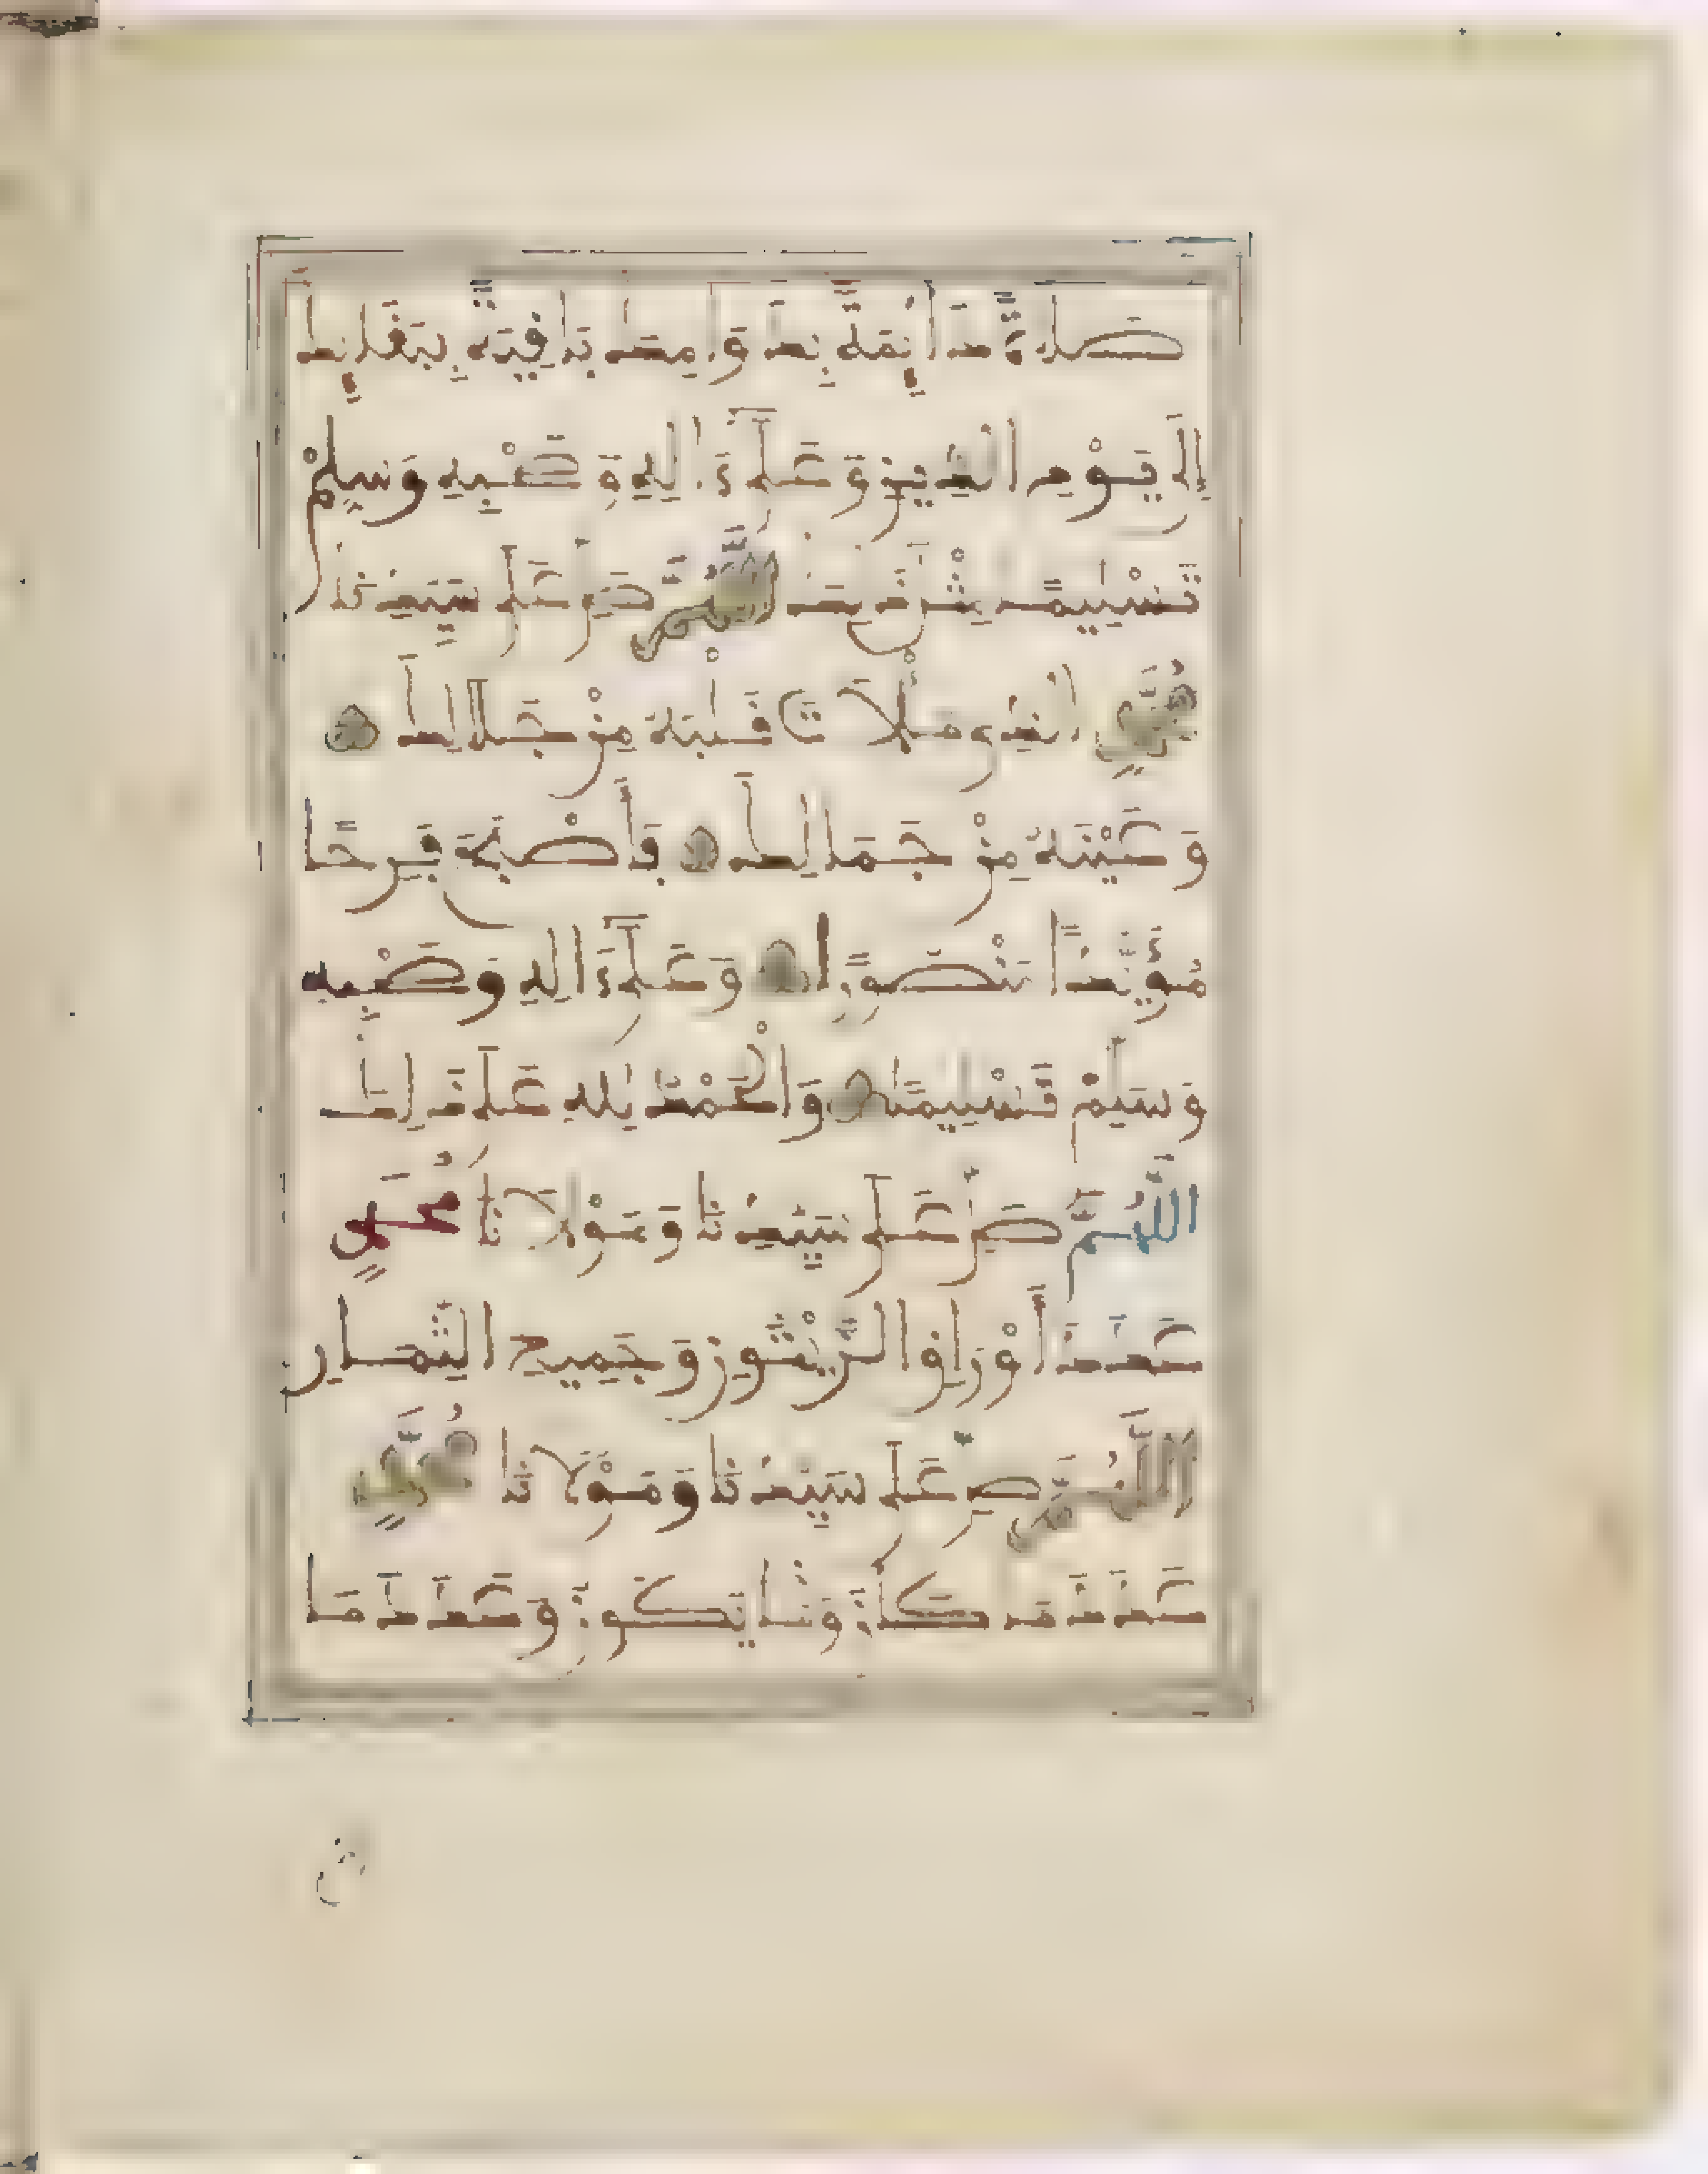 صَلَاةً دَائِمَةً بِدَوَامِكَ بَاقِيَةً بِبَقَائِكَ
إِلَى يَوْمِ الدِّينِ وَعَلَى ءَالِهِ وَصَحْبِهِ وَسَلِّمْ
تَسْلِيمًا مِثْلَ ذَلِكَ اللَّهُمَّ صَلِّ عَلَى سَيِّدِنَا
مُحَمَّدٍ الَّذِي مَلَأْتَ قَلْبَهُ مِنْ جَلَالِكَ
وَعَيْنَهُ مِنْ جَمَالِكَ فَأَصْبَحَ فَرِحًا
مُؤَيَّدًا مَنْصُورًا وَعَلَى ءَالِهِ وَصَحْبِهِ
وَسَلِّمْ تَسْلِيمًا وَالْحَمْدُ لِلَّهِ عَلَى ذَلِكَ
اللَّهُمَّ صَلِّ عَلَى سَيِّدِنَا وَمَوْلَانَا مُحَمَّدٍ
عَدَدَ أَوْرَاقِ الزَّيْتُونِ وَجَمِيعِ الثِّمَارِ
اللَّهُمَّ صَلِّ عَلَى سَيِّدِنَا وَمَوْلَانَا مُحَمَّدٍ
عَدَدَ مَا كَانَ وَمَا يَكُونُ وَعَدَدَ مَا